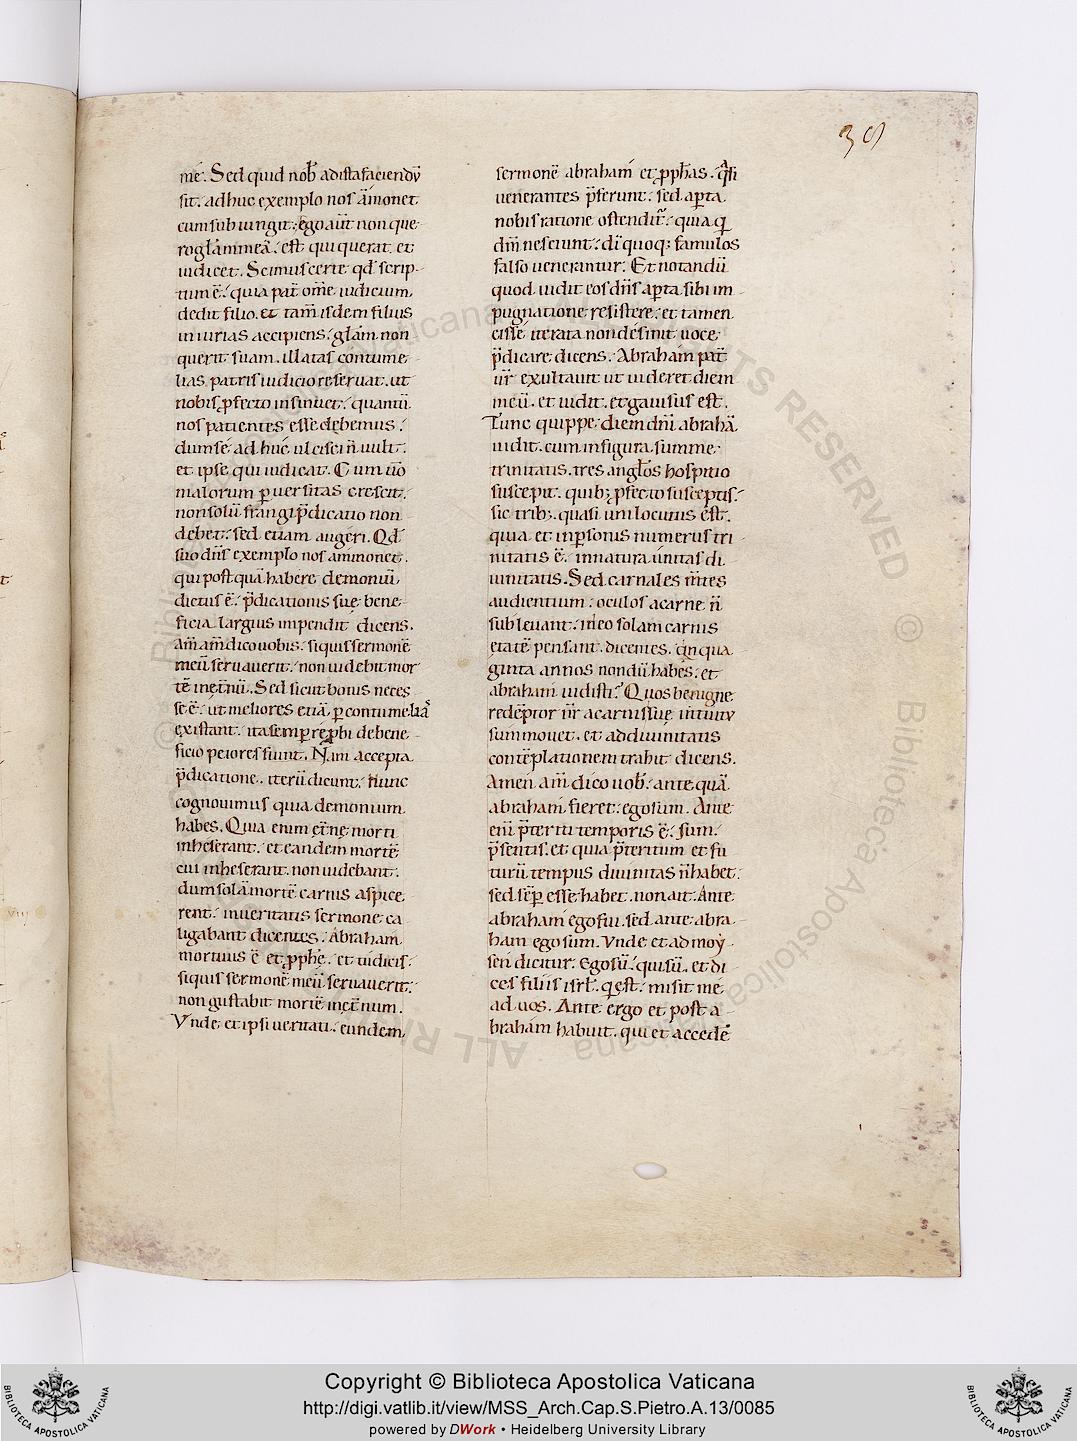 39
me. Sed quid nob̄ adista faciendū
sit. adhuc exemplo nos āmonet
cum subiungit; ego aut̄ non que
ro glām meā. est qui querat et
iudicet. Scimus certe qd̄ scrip
tum ē. quia pat̄ om̄e iudicium
dedit filio. et tam̄ isdem filius
iniurias accipiens. glām non
querit suam. illatas contume
lias patris iudicio reseruat. ut
nobis p̱fecto insinuet. quantū
nos patientes esse debemus.
dum se adhuc ulcisci n̄ uult.
et ipse qui iudicat. Cum ū̄o
malorum p̱uersitas crescit.
non solū frangi p̄dicatio non
debet. sed etiam augeri. Qd̄
suo dn̄s exemplo nos ammonet.
qui postquā habere demoniū
dictus ē. p̄dicationis sue bene
ficia largius impendit dicens.
am̄ am̄ dico uobis. siquis sermonē
meū seruauerit. non uidebit mor
tē inet̄nū. Sed sicut bonis neces
se ē. ut meliores etiā p̱ contumeliā
existant. ita semp̱ rep̱bi de bene
ficio peiores fiunt. Nam accepta
p̄dicatione. iterū dicunt. Nunc
cognouimus quia demonium
habes. Quia enim et̄ne morti
inheserant. et eandem mortē
cui inheserant. non uidebant.
dum solā mortē carnis aspice
rent. in ueritatis sermone ca
ligabant dicentes. Abraham
mortuus ē et p̱phȩ. et tu dicis.
siquis sermonē meū seruauerit.
non gustabit mortē inet̄num.
Vnde et ipsi ueritati. eundem
sermonē abraham et p̱phas. q̄si
uenerantes p̄ferunt. sed ap̱ta
nobis ratione ostendit̄. quia q̄
dm̄ nesciunt. dī quoq; famulos
falso uenerantur. Et notandū
quod uidit eos dn̄s ap̱ta sibi im
pugnatione resistere. et tamen
eis se iterata non desinit uoce
p̄dicare dicens. Abraham pat̄
ūr exultauit ut uideret diem
meū. et uidit. et gauisus est.
Tunc quippe diem dn̄i abrahā
uidit. cum in figura summe
trinitatis. tres angl̄os hospitio
suscepit. quib; p̱fecto susceptis.
sic trib;. quasi uni locutus est.
quia et in p̱sonis numerus tri
nitatis ē. in natura unitas di
uinitatis. Sed carnales m̄tes
audientium. oculos a carne n̄
subleuant. in eo solam carnis
etatē pensant. dicentes. q̄nqua
ginta annos nondū habes. et
abraham uidisti? Quos benigne
redēptor n̄r a carnis sue intuitu
summouet. et ad diuinitatis
contēplationem trahit dicens.
Amen am̄ dico uob̄. ante quā
abraham fieret. ego sum. Ante
eni p̄teriti temporis ē. sum.
p̄sentis. et quia p̄teritum et fu
turū tempus diuinitas n̄ habet.
sed sēp̱ esse habet. non ait. Ante
abraham ego fui. sed ante abra
ham ego sum. Vnde et ad moy
sen dicitur. Ego sū. qui sū. et di
ces filiis isrl̄. q̱ est. misit me
ad uos. Ante ergo et post a
braham habuit. qui et accede
Copyright © Biblioteca Apostolica Vaticana
http://digi.vatlib.it/view/MSS_Arch.Cap.S.Pietro.A.13/0085
powered by DWork • Heidelberg University Library